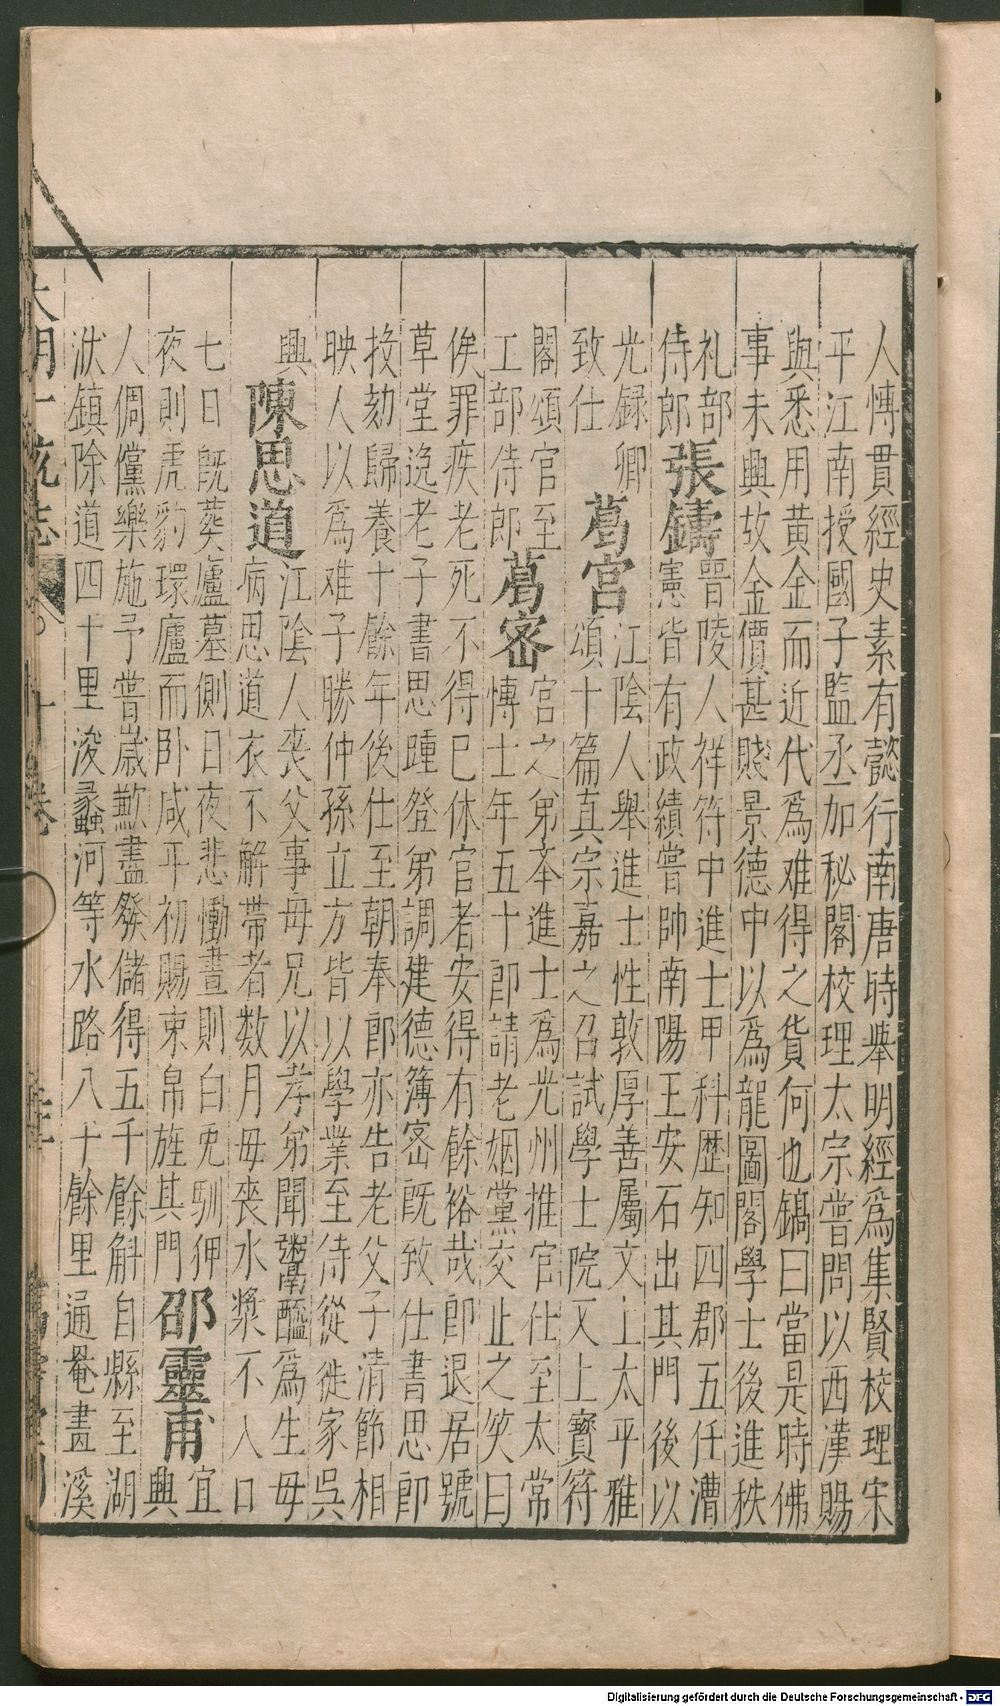 人愽貫經史素有懿行南唐時舉明經爲集賢校理宋
平江南授國子監丞加秘閣校理太宗嘗問以西漢賜
與悉用黄金而近代爲难得之貨何也鎬曰當是時佛
事未興故金價甚賤景德中以爲龍圖閣學士後進秩
礼部
侍郎
張鑄
晋陵人祥符中進士甲科歴知四郡五任漕
憲皆有政績嘗帥南陽王安石出其門後以
光録卿
致仕
葛宮
江陰人舉進士性敦厚善屬文上太平雅
頌十篇真宗嘉之召試學士院又上寳符
閣頌官至
工部侍郎
葛宻
宮之弟夲進士爲光州推官仕至太常
愽士年五十即請老姻黨交止之笑曰
俟罪疾老死不得已休官者安得有餘裕哉即退居號
草堂逸老子書思踵登弟調建德簿宻既致仕書思即
投劾歸養十餘年後仕至朝奉郎亦告老父子清節相
映人以爲难子勝仲孫立方皆以學業至侍從徙家吳
興
陳思道
江陰人丧父事母兄以孝弟聞鬻醯爲生母
病思道衣不解帶者数月母丧水漿不入口
七日既葬廬墓側日夜悲慟晝則白兎馴狎
夜則虎豹環廬而卧咸平初賜束帛旌其門
邵靈甫
宜
興
人倜儻樂施予嘗歲歉盡發儲得五千餘斛自縣至湖
洑鎮除道四十里浚蠡河等水路八十餘里通罨畫溪
大明一統志
十卷
Digitalisierung gefördert durch die Deutsche Forschungsgemeinschaft - DFG